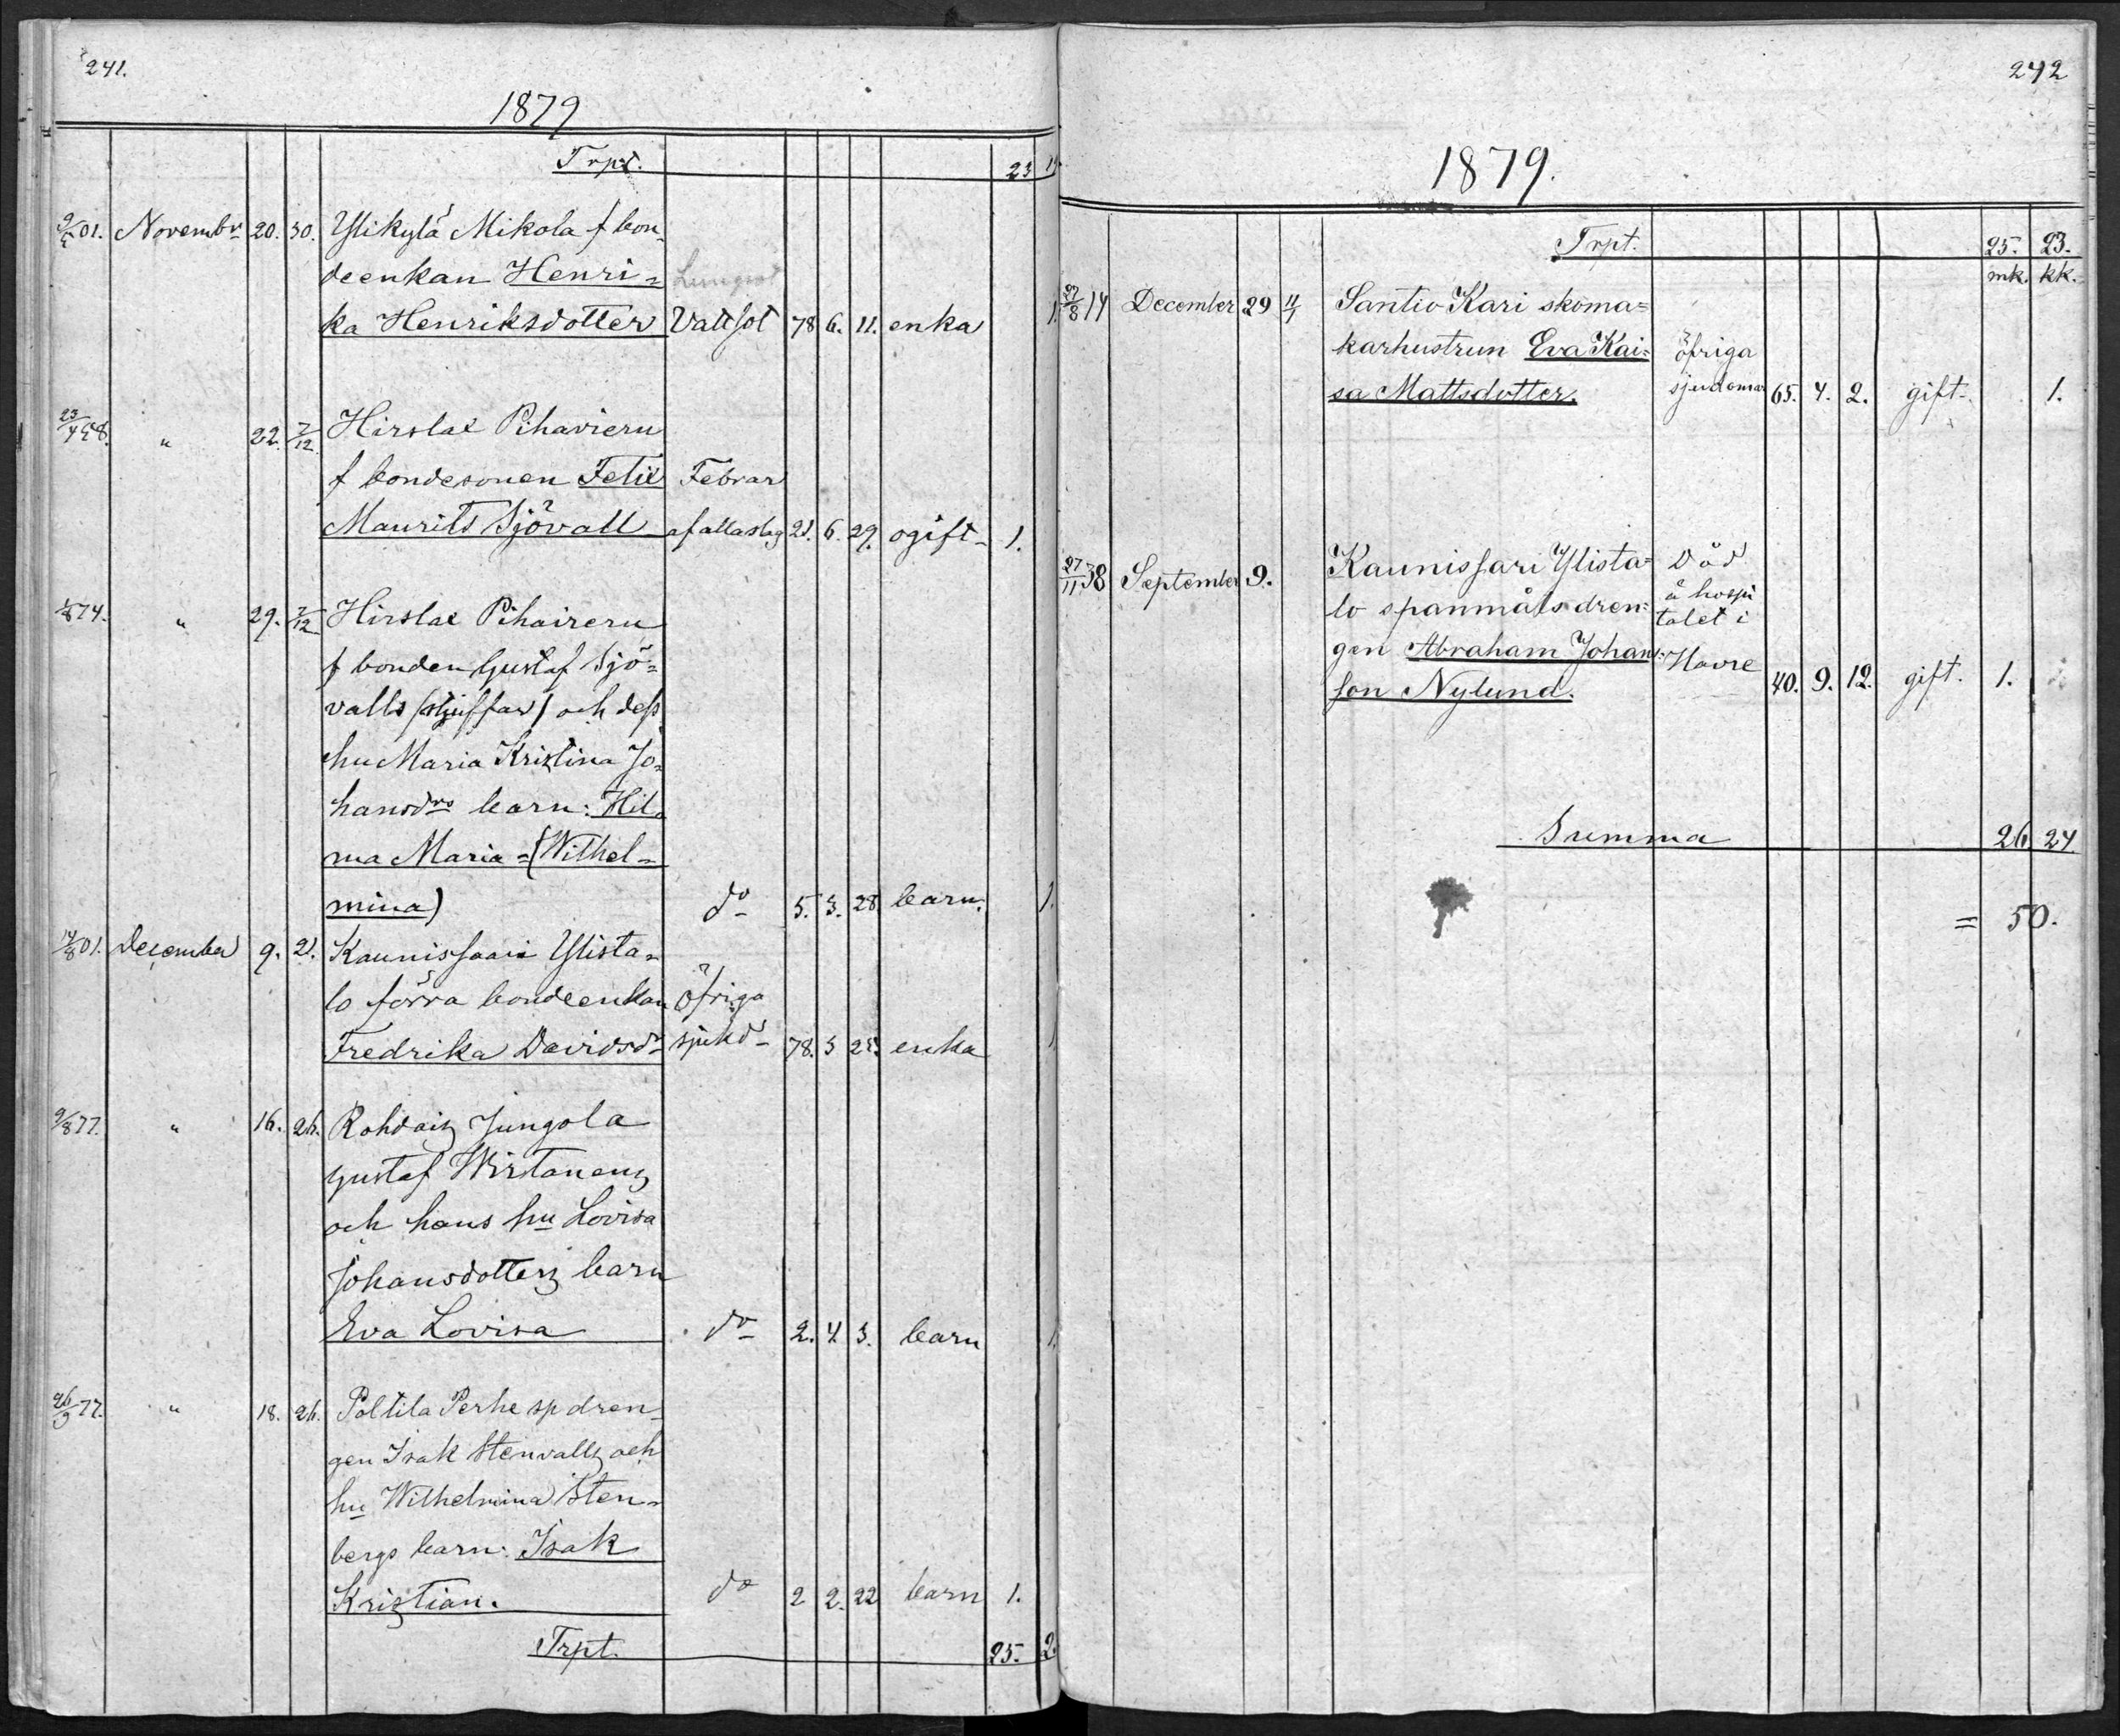 241.
1879
Trpt. 23
9/5 01. Novembr 20. 30. Ylikylä Mikola f bon-
deenkan Henri-
ka Henriksdotter Vattsot 78 6. 11. enka 1.
23/4 58. " 22. 7/12 Hirslax Pihavieru
f bondesonen Felix Febrar
Maurits Sjövall af alla slag 21. 6. 29. ogift 1.
74. " 29. 7/12 Hirslax Pihavieru
f bonden Gustaf Sjö-
valls (stjuffar) och dess
hu Maria Kristina Jo-
hansdrs barn: Hil-
ma Maria (Wilhel-
mina) do 5. 3. 28. barn. 1.
01. December 9. 21. Kaunissaari Ylista-
lo förra bondeenkan öfriga
Fredrika Davidsdr sjukd 78. 3 25. enka 1
77. " 16. 26. Rohdais Jungola
Gustaf Wirtanens
och hans hu Lovisa
Johansdotters barn
Eva Lovisa do 2. 4. 3. barn 1.
26/9 77. " 18. 26. Poltila Perhe sp dren-
gen Isak Stenvalls och
hu Wilhelmina Sten-
bergs barn: Isak
Kristian. do 2 2. 22 barn 1.
Trpt. 25. 2
242
1879.
Trpt. 25. 23.
mk. kk.
27/8 14 December 29 11/1 Santio Kari skoma-
karhustrun Eva Kai- öfriga
sa Mattsdotter. sjukdomar 65. 4. 2. gift. 1.
27/11 38 September 9. Kaunissari Ylista- Död
lo spanmålsdren- å hospi
talet i
gen Abraham Johans- Havre
son Nylund. 40. 9. 12. gift. 1.
Summa 26. 24.
= 50.